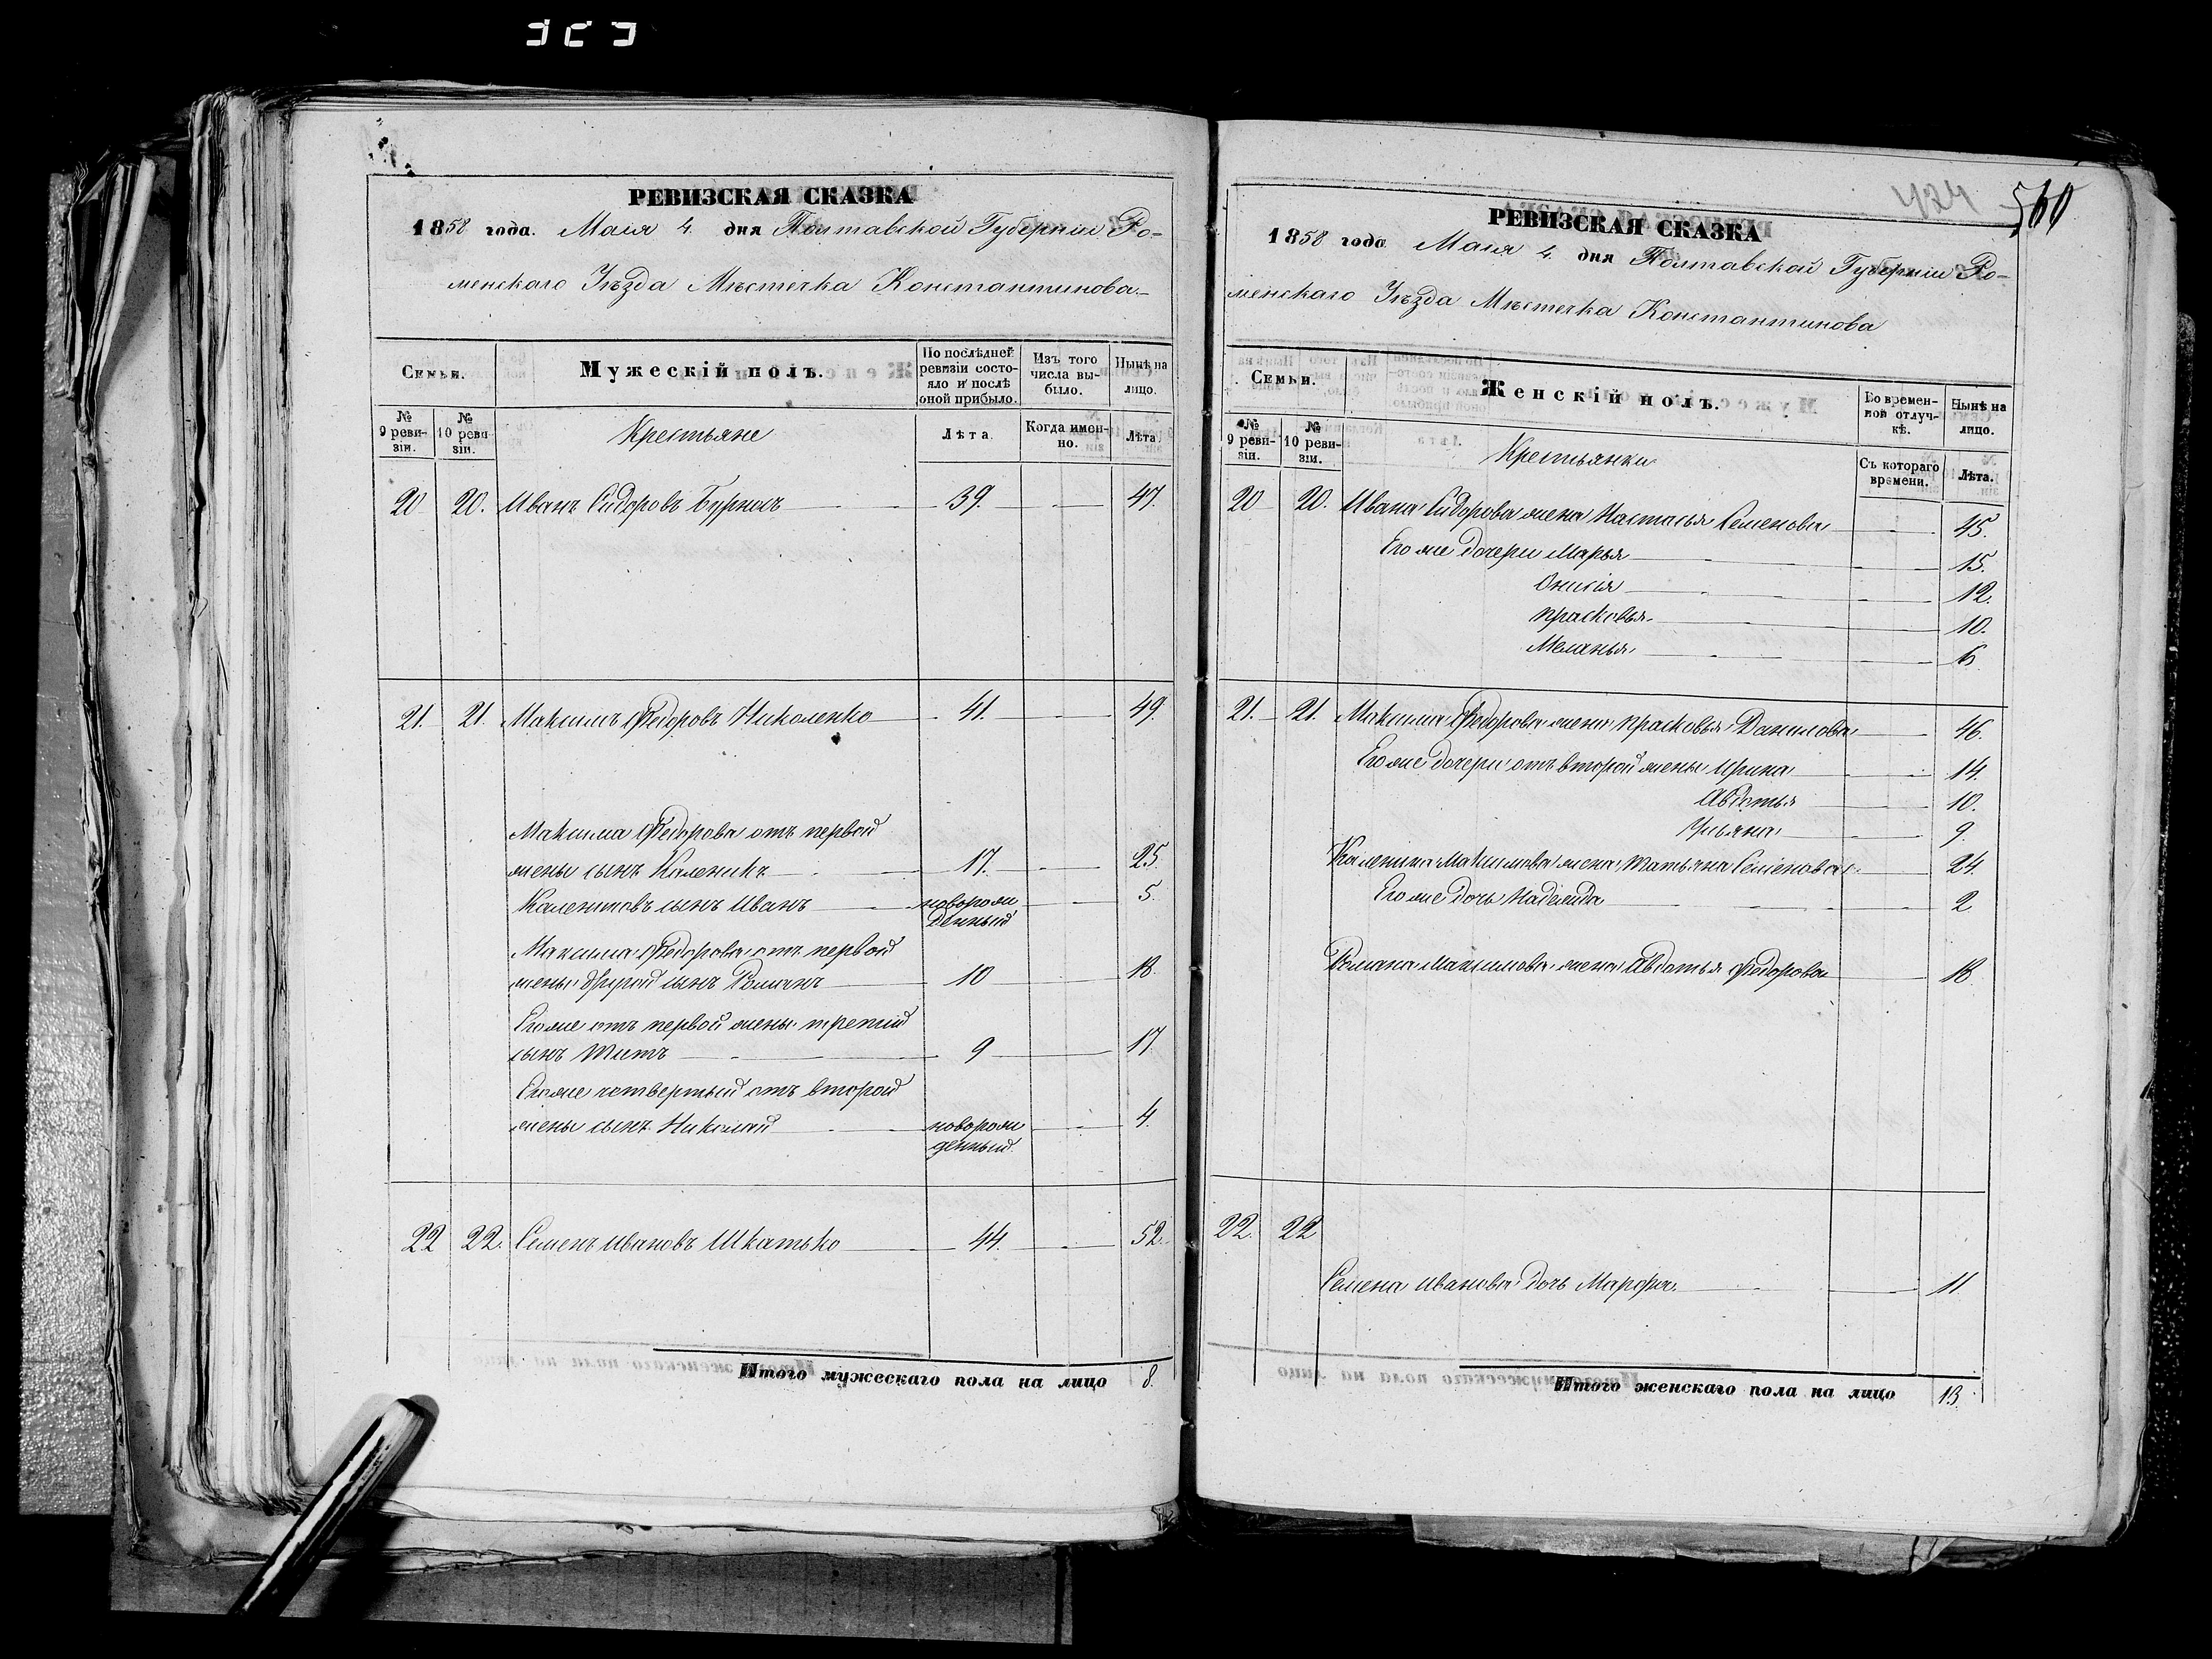 РЕВИЗСКАЯ СКАЗКА
1858 года. Маія 4. дня Полтавской Губерніи Ро-
менскаго Уѣзда Мѣстечка Константинова
Семьи.
Мужескій полъ.
По послѣдней ревизіи состояло и послѣ оной прибыло.
Изъ того числа выбыло.
Нынѣ на лицо.
№ 9 ревизіи.
№ 10 ревизіи.
Крестьяне
Лѣта.
Когда именно.
Лѣта.
20 20. Иванъ Сидоровъ 39. 47.
21. 21. Максимъ Федоровъ Николенко 41. 49.
Максима Федорова отъ первой
жены сынъ Каленикъ 17. 25.
Калениковъ сынъ Иванъ новорожденный 5.
Максима Федорова отъ первой
жены другой сынъ Романъ 10 18.
Его же отъ первой жены третій
сынъ Титъ 9 17.
Его же четвертый отъ второй
жены сынъ Николай новорожденный 4.
22 22. Семенъ Ивановъ Шкатько 44. 52.
Итого мужескаго пола на лицо 8.
424 560
РЕВИЗСКАЯ СКАЗКА
1858 года Маія 4. дня Полтавской Губерніи Ро-
менскаго Уѣзда Мѣстечка Константинова
Семьи.
Женскій полъ.
Во временной отлучкѣ.
Нынѣ на лицо.
№ 9 ревизіи.
№ 10 ревизіи.
Крестьянки
Съ котораго времени.
Лѣта.
20 20. Ивана Сидорова жена Настасья Семенова 45.
Его же дочери Марья 15.
Онисія 12.
Прасковья 10.
Меланья 6
21. 21. Максима Федорова жена Прасковья Данилова 46.
Его же дочери отъ второй жены Ирина 14.
Авдотья 10.
Ульяна 9.
Каленика Максимова жена Татьяна Семенова 24.
Его же дочь Надежда 2
Романа Максимова жена Авдотья Федорова 18
22. 22
Семена Иванова дочь Марфа 11.
Итого женскаго пола на лицо 13.